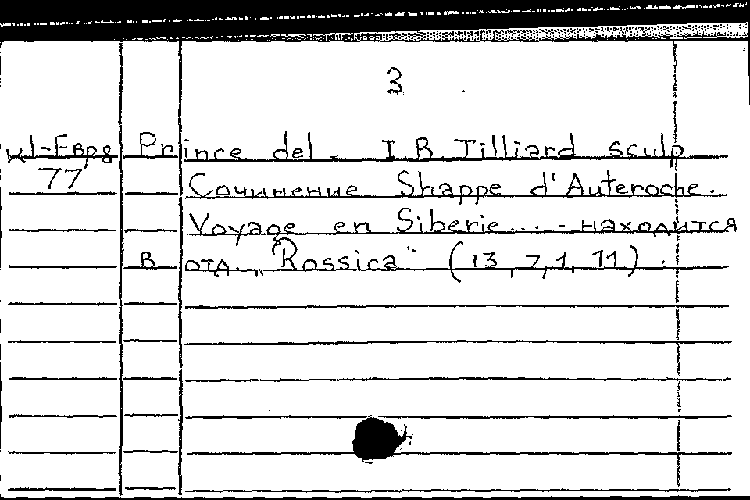 3
Prince del. I.B. Tilliard sculp
77 Сочинение Shappe d'Auteroche.
Voyage en Siberie... - находится
в отд. „Rossica" (13,7,1,11).